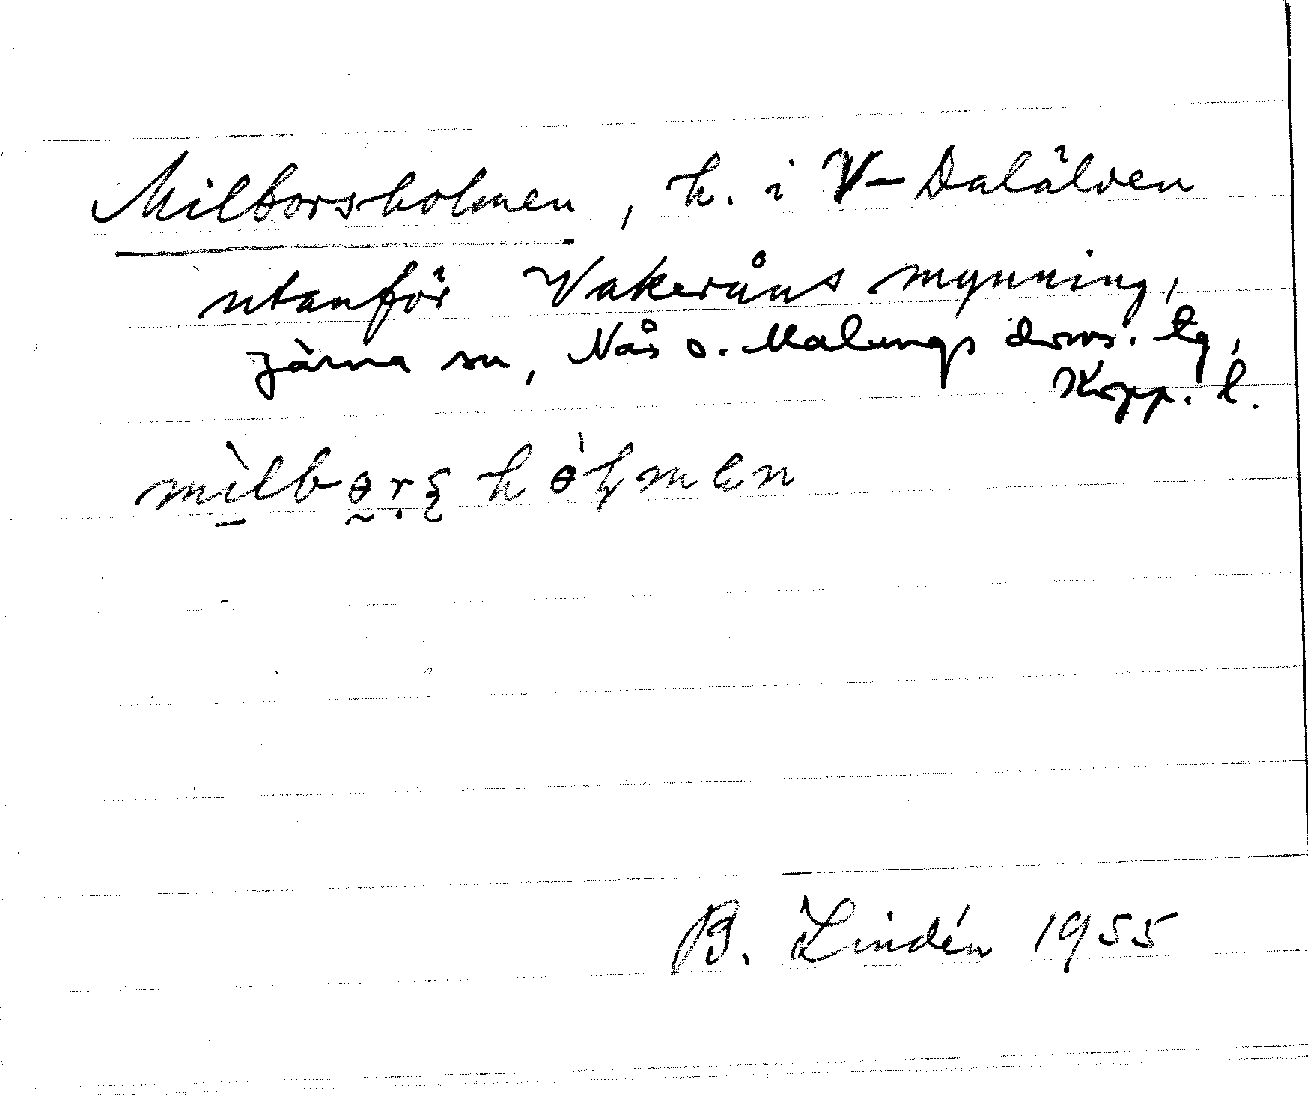 Milborsholmen, h. i V-Dalälven
utanför Vakeråns mynning,
Järna sn, Nås o. Malungs doms. lg,
Kopp. l.
mìlbɵrs hɵ́ɽmɛn
B. Lindén 1955